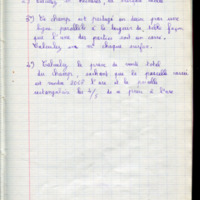 2) Calculez
3°) Ce champ est partagé en deux par une
ligne parallèle à la largeur de telle façon
que l'une des parties soit un carré.
Calculez en m² chaque surface.
4°) Calculez le prix de vente total
du champ, sachant que la parcelle carrée
est vendue l'are et la parcelle
rectangulaire les 4/5 de ce prix à l'are